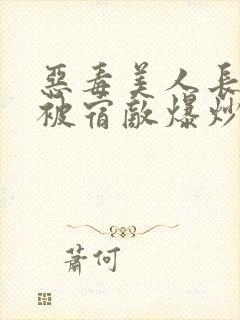 惡毒美人長
被宿敵爆炒
蕭何